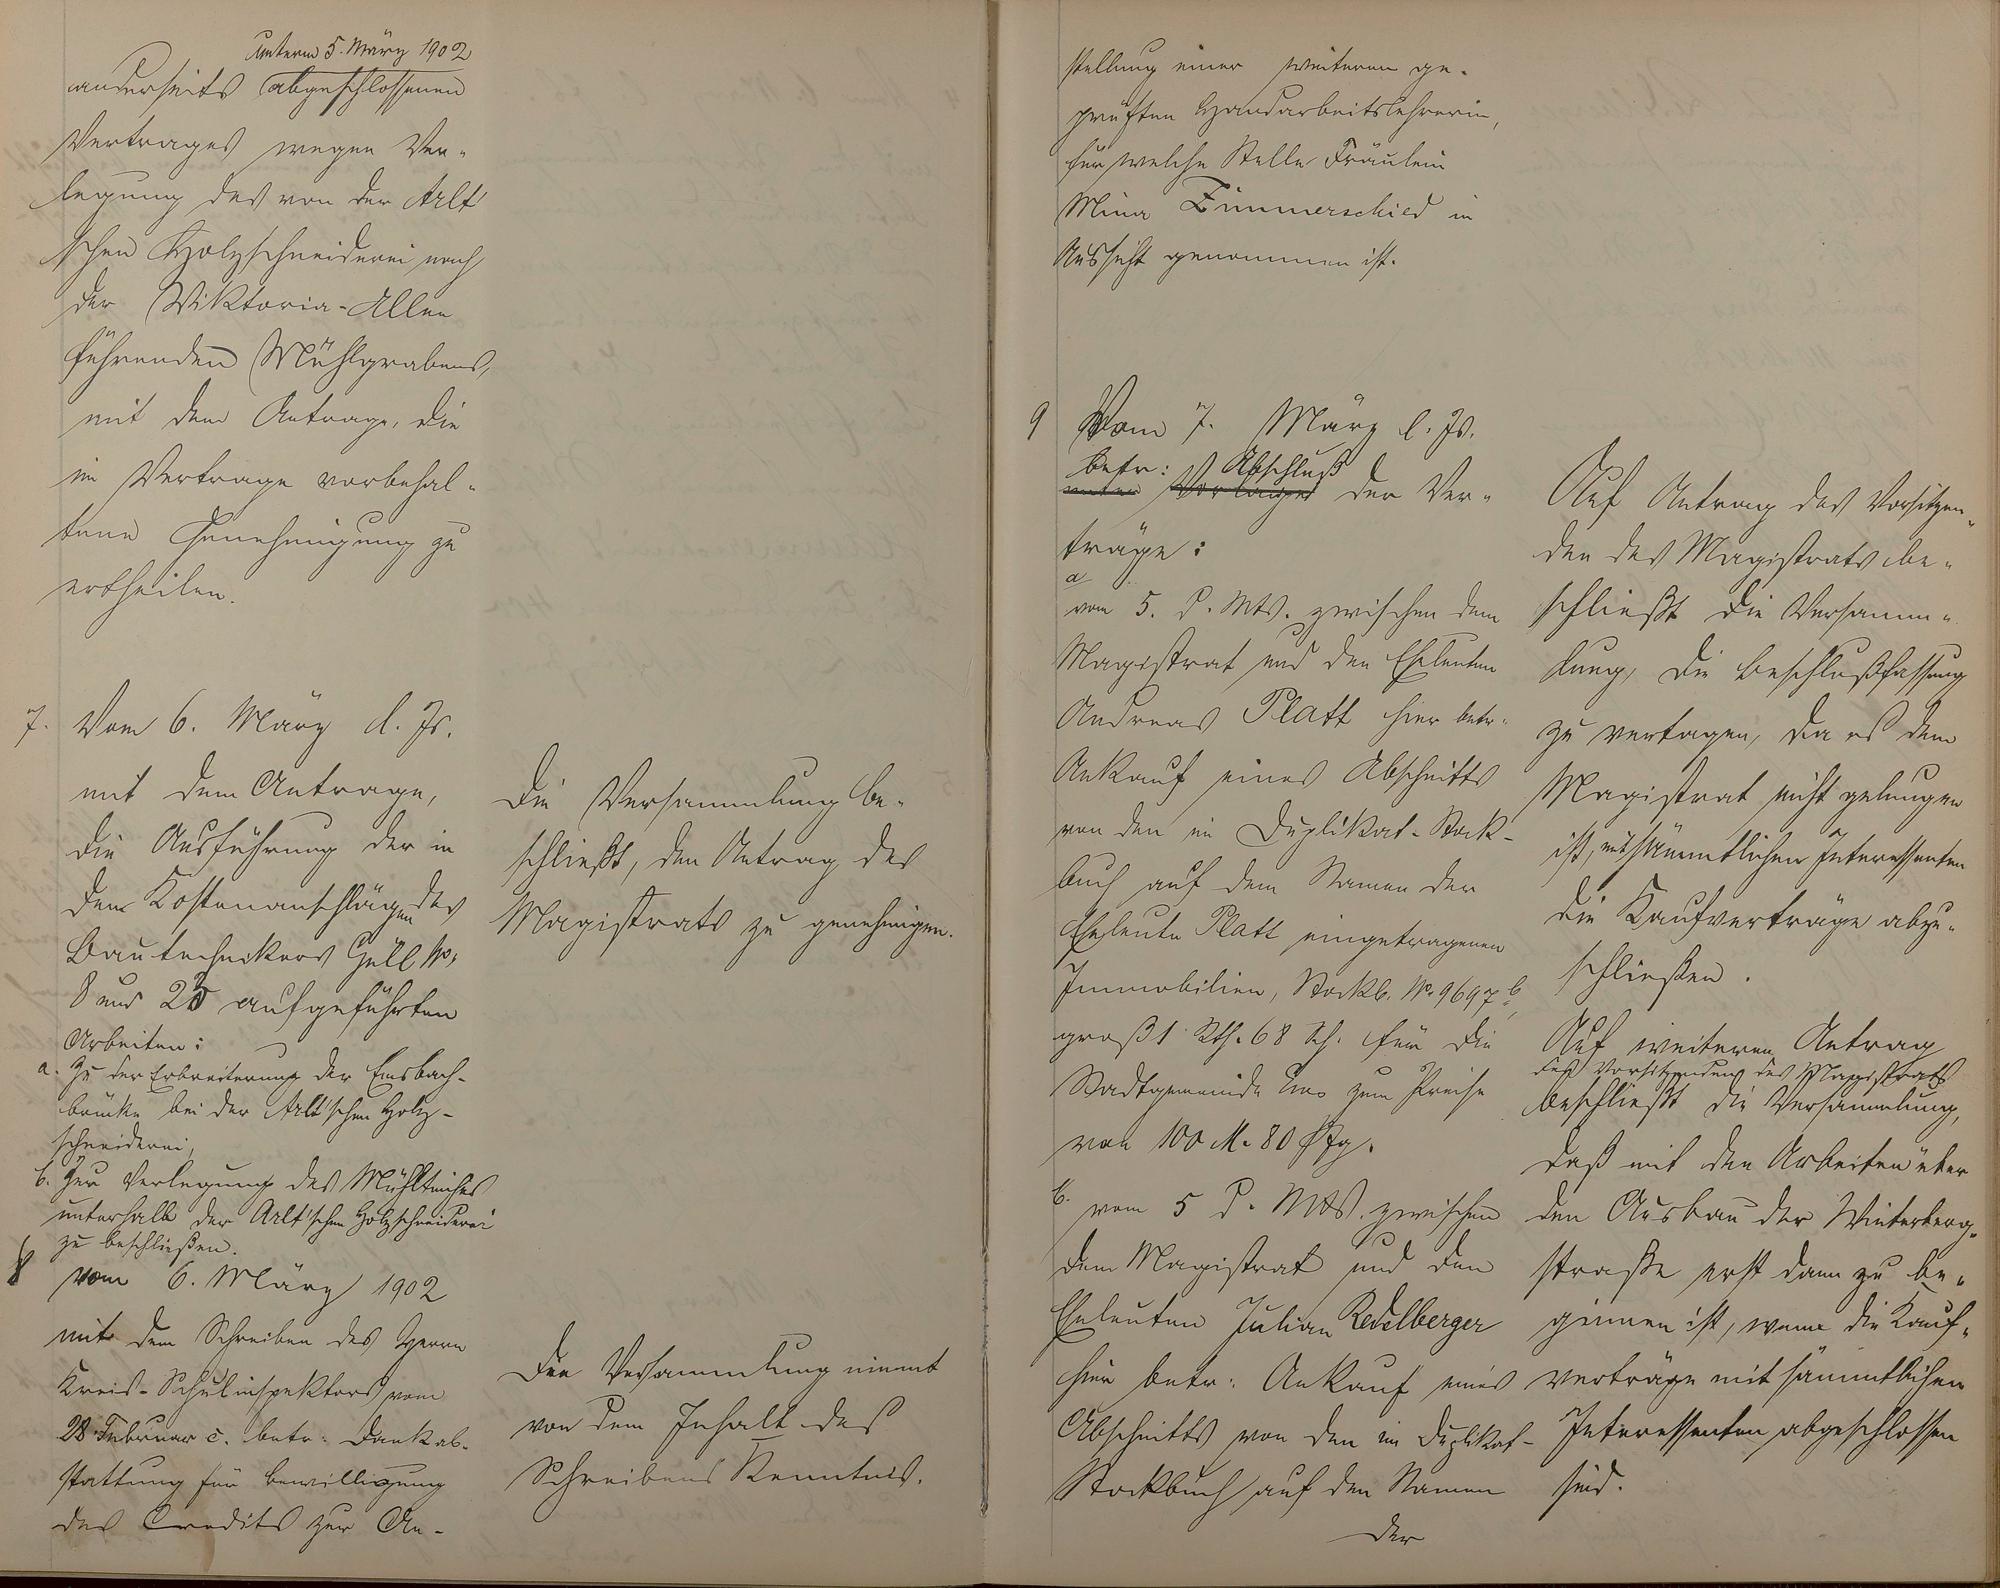 unterm 5. März 1902
anderseits abgeschlossenen
Vertrages wegen Ver-
legung des von der Arlt'
schen Holzschneiderei nach
der Viktoria-Allee
führenden Mühlgrabens,
mit dem Antrage, die
im Vertrage vorbehal-
tene Genehmigung zu
ertheilen.
7. Vom 6. März d. Js.
mit dem Antrage,
die Ausführung der in
den Kostenanschlägen des
Bautechnikers Güll No.
8 und 25 aufgeführten
Arbeiten:
a. Zu der Erbreiterung der Emsbach-
brücke bei der Arlt'schen Holz-
schneiderei,
b. Zur Verlegung des Mühlteiches
unterhalb der Arlt'schen Holzschneiderei
zu beschließen.
Die Versammlung be-
schließt, den Antrag des
Magistrats zu genehmigen.
8 vom 6. März 1902
mit dem Schreiben des Herrn
Kreis-Schulinspektors vom
28. Februar c. betr: Dankab-
stattung für Bewilligung
des Credits zur An-
Die Versammlung nimmt
von dem Inhalt des
Schreibens Kenntnis.
stellung einer weiteren ge-
prüften Handarbeitslehrerin,
für welche Stelle Fräulein
Mina Zimmerschied in
Aussicht genommen ist.
9 Vom 7. März d. Js.
betr: Abschluß
der Ver-
träge:
a
vom 5. d. Mts. zwischen dem
Magistrat und den Eheleuten
Andreas Platt hier betr.
Ankauf eines Abschnitts
von den im Duplikat-Stock-
buch auf dem Namen der
Eheleute Platt eingetragenen
Immobilien, Stockb. No. 9697 b,
groß 1 Rth. 68 Sch. für die
Stadtgemeinde Ems zum Preise
von 100 M. 80 Pfg.
b. vom 5 d. Mts. zwischen
dem Magistrat und den
Eheleuten Julian Redelberger
hier betr: Ankauf eines
Abschnitts von den im Duplikat-
Stockbuch auf den Namen
der
Auf Antrag des Vorsitzen-
den des Magistrats be-
schließt die Versamm-
lung, die Beschlußfassung
zu vertagen, da es dem
Magistrat nicht gelungen
ist, mit sämmtlichen Interessenten
die Kaufverträge abzu-
schließen.
Auf weiteren Antrag
des Vorsitzenden des Magistrats
beschließt die Versammlung,
daß mit den Arbeiten über
den Ausbau der Winterberg-
straße erst dann zu be-
ginnen ist, wenn die Kauf-
verträge mit sämmtlichen
Interessenten abgeschlossen
sind.